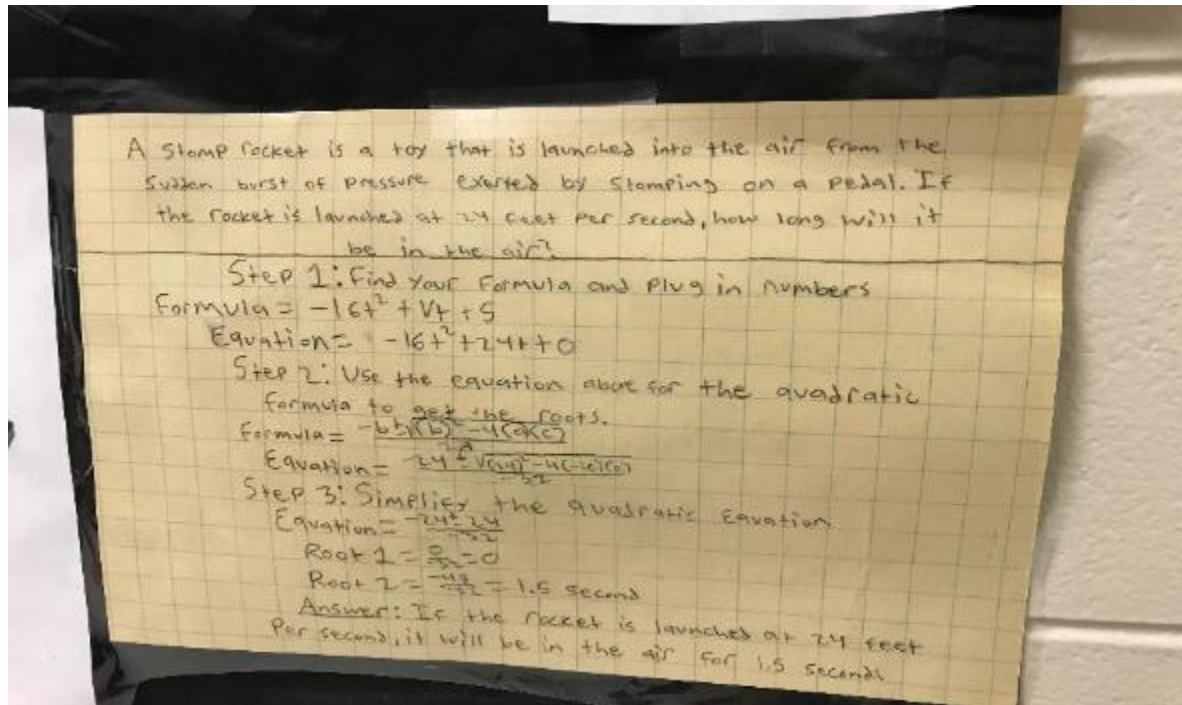 A Stomp rocket is a toy that is launched into the air from the
sudden burst of pressure exerted by stomping on a pedal. If
the rocket is launched at 24 feet per second, how long will it
be in the air?
Step 1: Find your formula and plug in numbers
Formula = -16t² + Vt + S
Equation = -16t² + 24t + 0
Step 2: Use the equation above for the quadratic
formula to get the roots.
Formula = -b±√(b)²-4(a)(c)
Equation = 24 ± √(24)²-4(-16)(0)
-32
Step 3: Simplify the quadratic Equation
Equation = -24±24
-32
Root 1 = 0/-32 = 0
Root 2 = -48/-32 = 1.5 second
Answer: If the rocket is launched at 24 feet
Per second, it will be in the air for 1.5 seconds